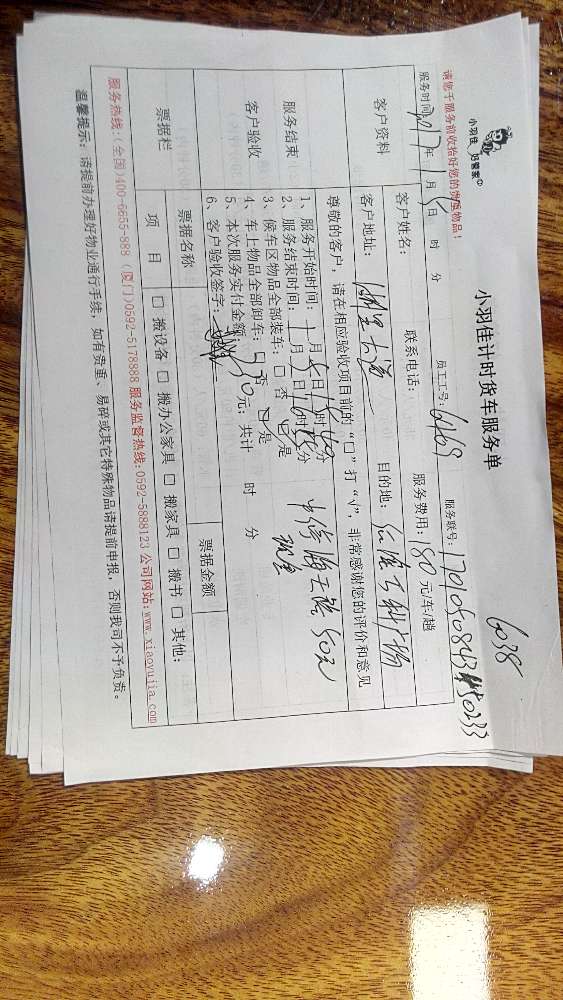 6038
小羽佳 好管家
小羽佳计时货车服务单
请您于服务前收拾好您的物理物品！
员工工号：6469 服务联号：
服务时间 年1月5日 时 分
服务费用：80元/车/趟
客户资料
客户姓名： 联系电话：
客户地址： 目的地：
尊敬的客户，请在相应验收项目前的“□”打“√”，非常感谢您的评价和意见
服务结束
客户验收
1、服务开始时间：1月5日 时 分
2、服务结束时间：1月5日16时 分
3、候车区物品全部装车：□否 □是
4、车上物品全部卸车：□否 □是
5、本次服务实付金额：230元；共计 时 分
6、客户验收签字：
现金
票据栏
票据名称 票据金额
项 目 □搬设备 □搬办公家具 □搬家具 □搬书 □其他：
服务热线：(全国)400-6655-888 (厦门)0592-5178888 服务监督热线:0592-5888123 公司网站:www.xiaoyujia.com
温馨提示：请提前办理好物业通行手续，如有贵重、易碎或其它特殊物品请提前申报，否则我司不予负责。